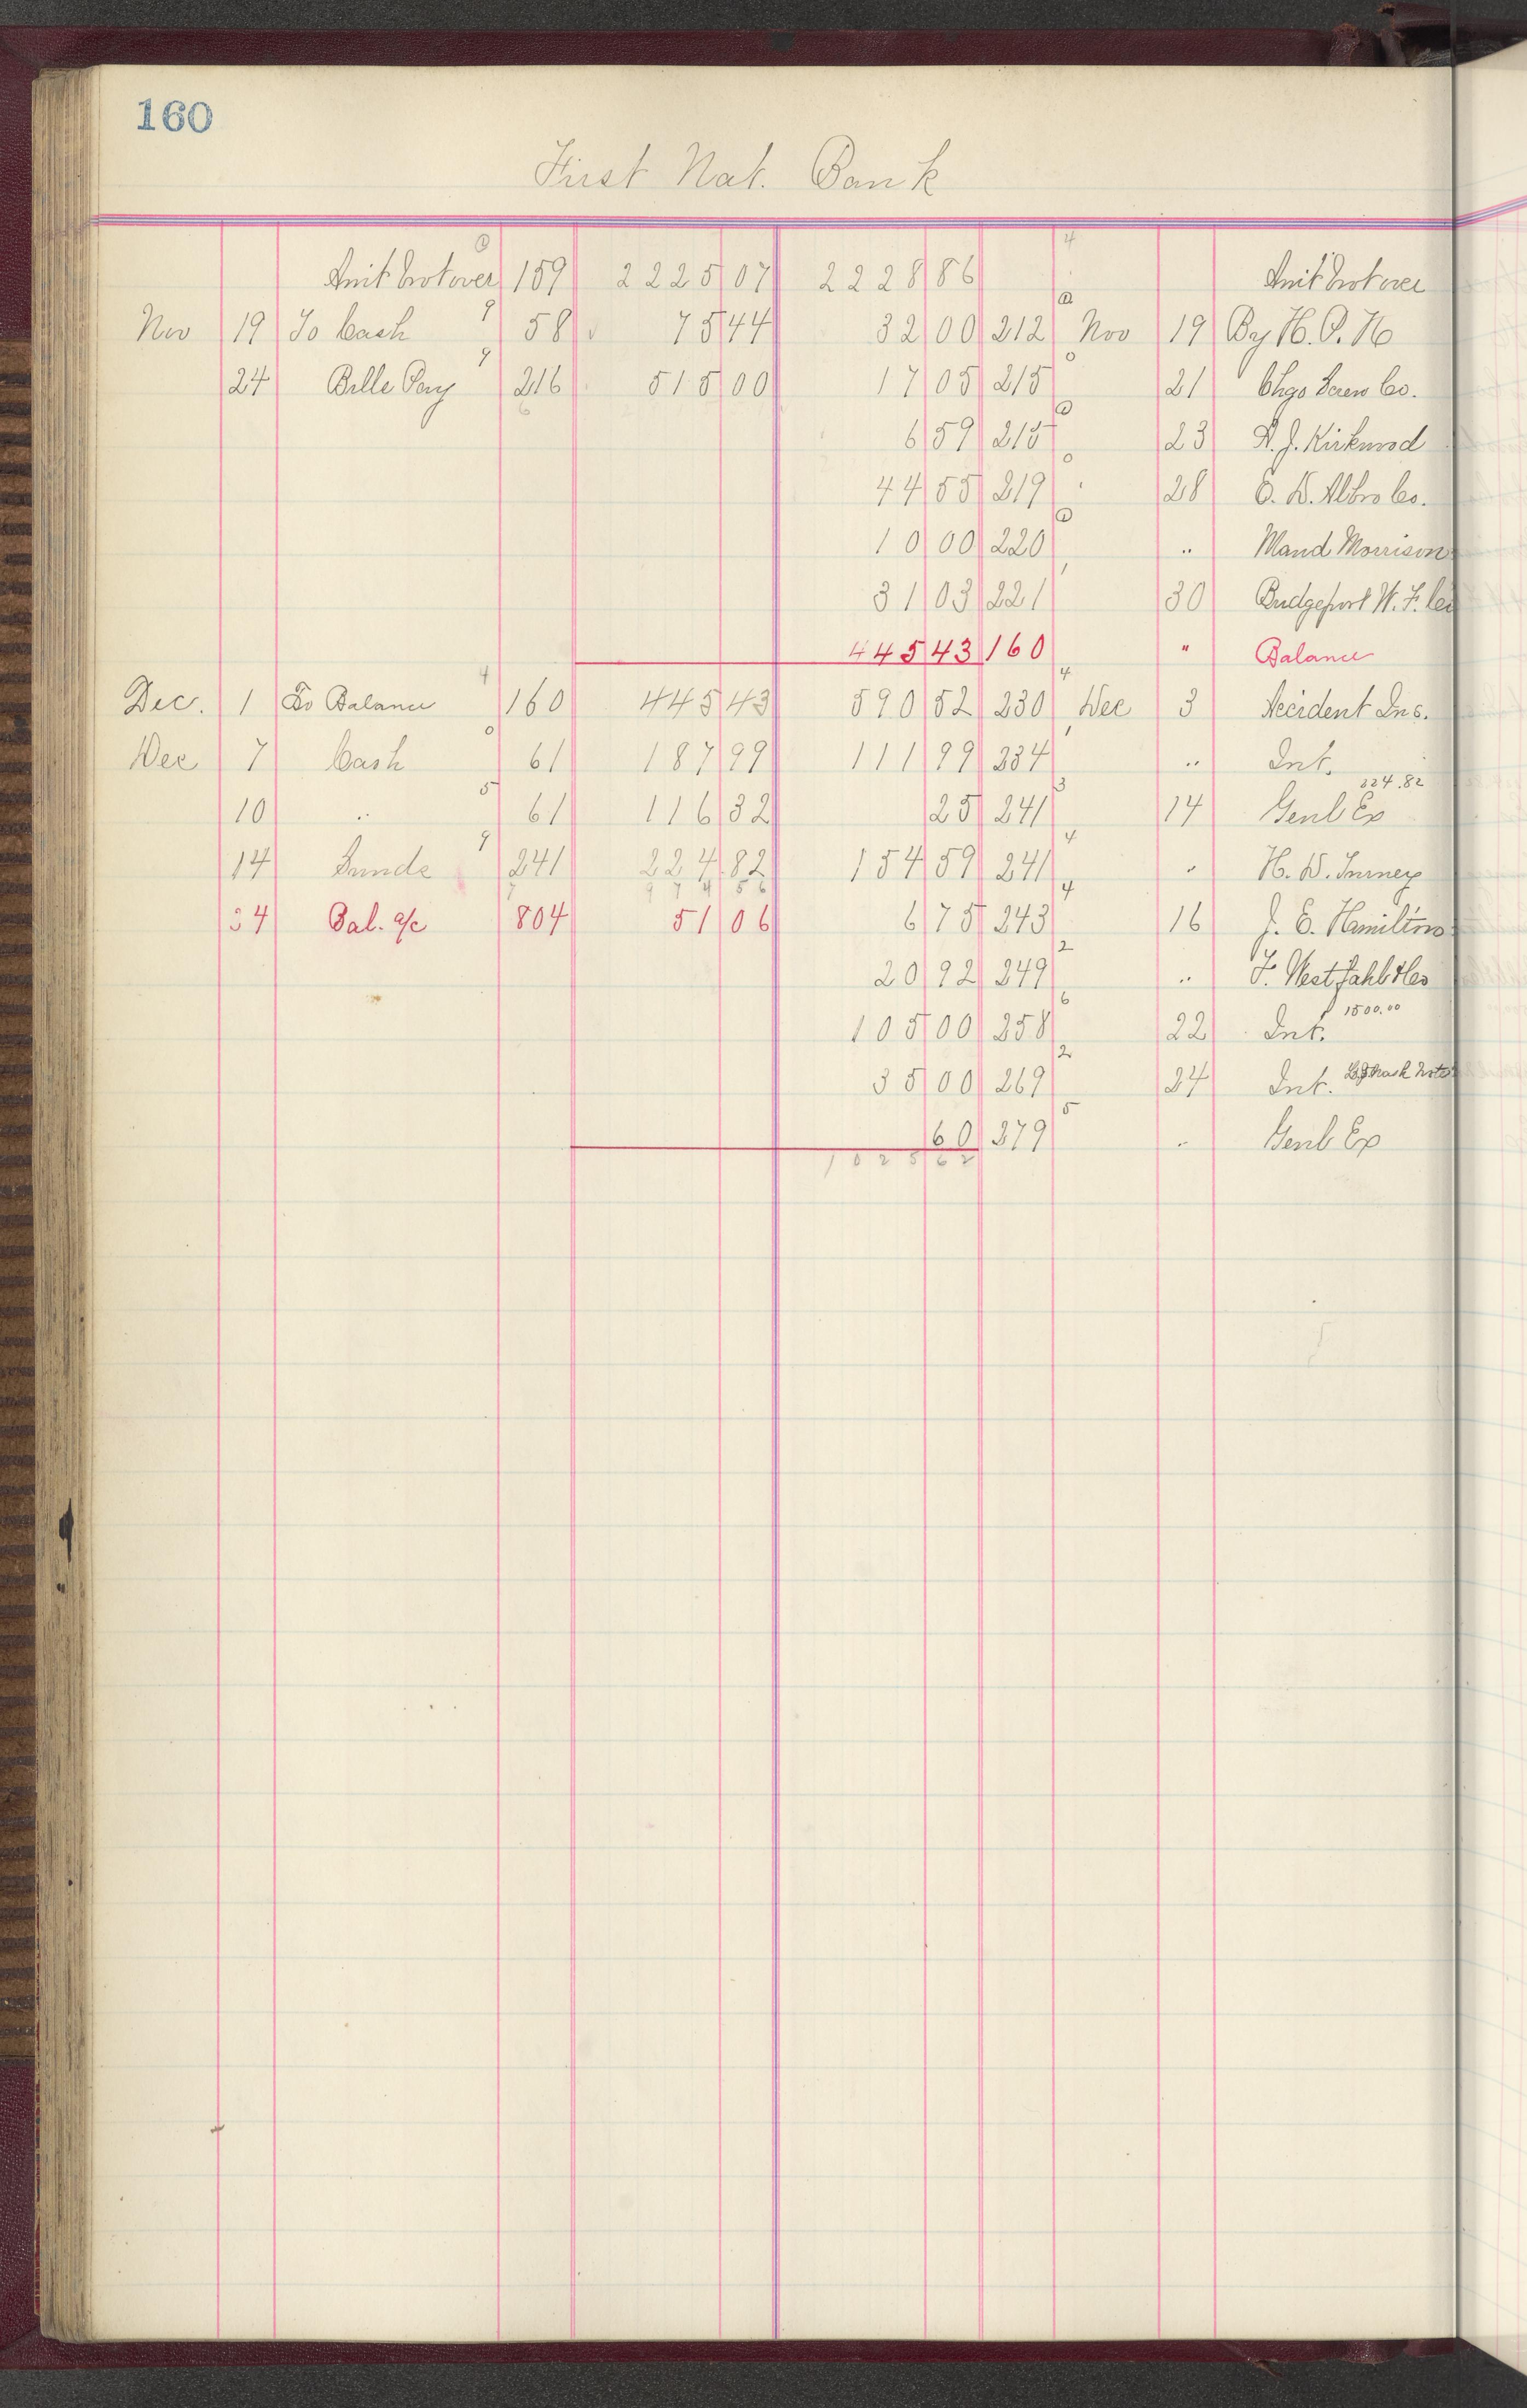 160
First Nat. Bank
Amt brot over 159 2225 07 2228 86 Amt brot over
Nov 19 To Cash 58 75 44 32 00 212 Nov 19 By H. P. H
24 Bills Pay 216 515 00 17 05 215 21 Chgo Screw Co.
6 59 215 23 A. J. Kirkwood
44 55 219 28 E. D. Albro Co.
10 00 220 " Maud Morrison
31 03 221 30 Bridgeport W. F. Co
445 43 160 " Balance
Dec. 1 To Balance 160 445 43 590 52 230 Dec 3 Accident Ins.
Dec 7 Cash 61 187 99 111 99 234 " Int.
224.82
10 " 61 116 32 25 241 14 Genl Ex
14 Sunds 241 224 82 154 59 241 " H. D.
974 56
34 Bal. a/c 804 51 06 6 75 243 16 J. E. Hamilton
20 92 249 " F. Westfahl & Co
1500.00
105 00 258 22 Int.
35 00 269 24 Int. Note
60 279 " Genl Ex
1025 62